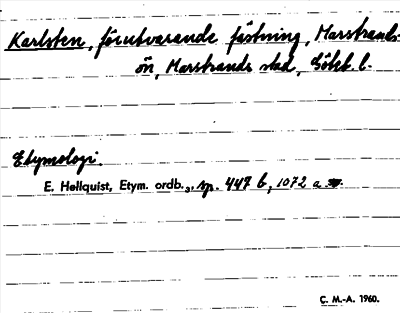 Karlsten, förutvarande fästning, Marstrands-
ön, Marstrands stad, Göteb. l.
Etymologi.
E. Hellquist, Etym. ordb.3, sp. 447 b, 1072 a.
C. M.-A. 1960.